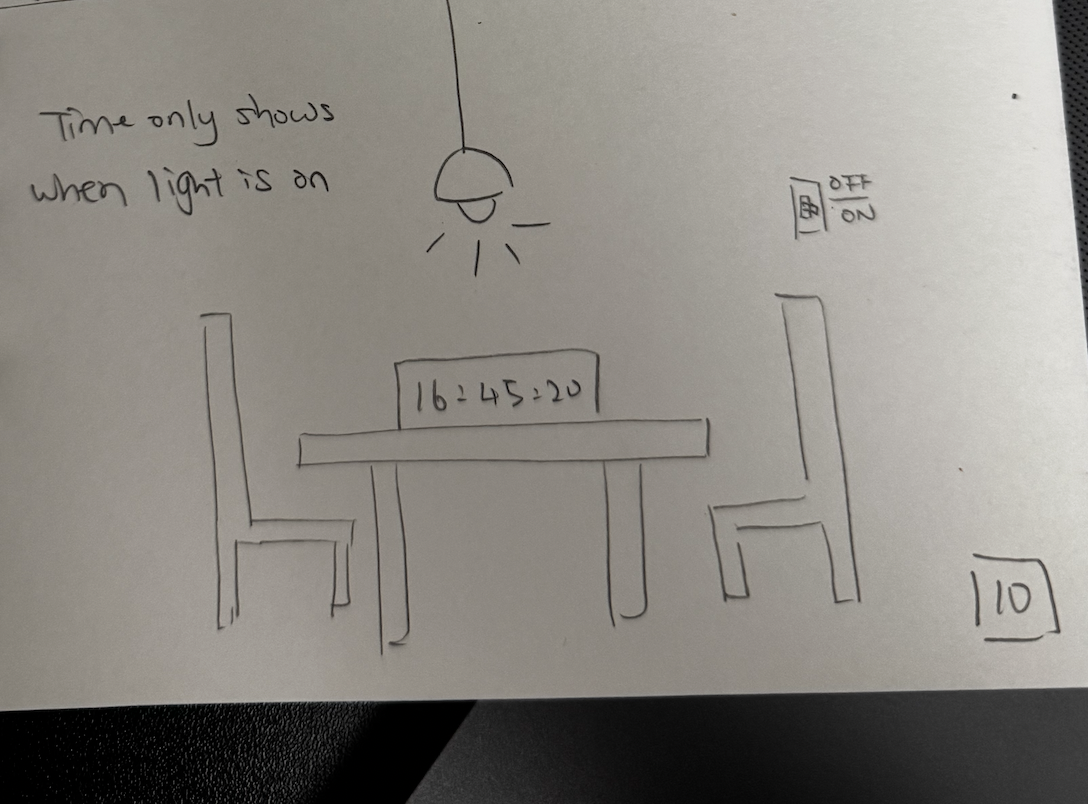 Time only shows
when light is on
OFF
ON
16:45:20
10